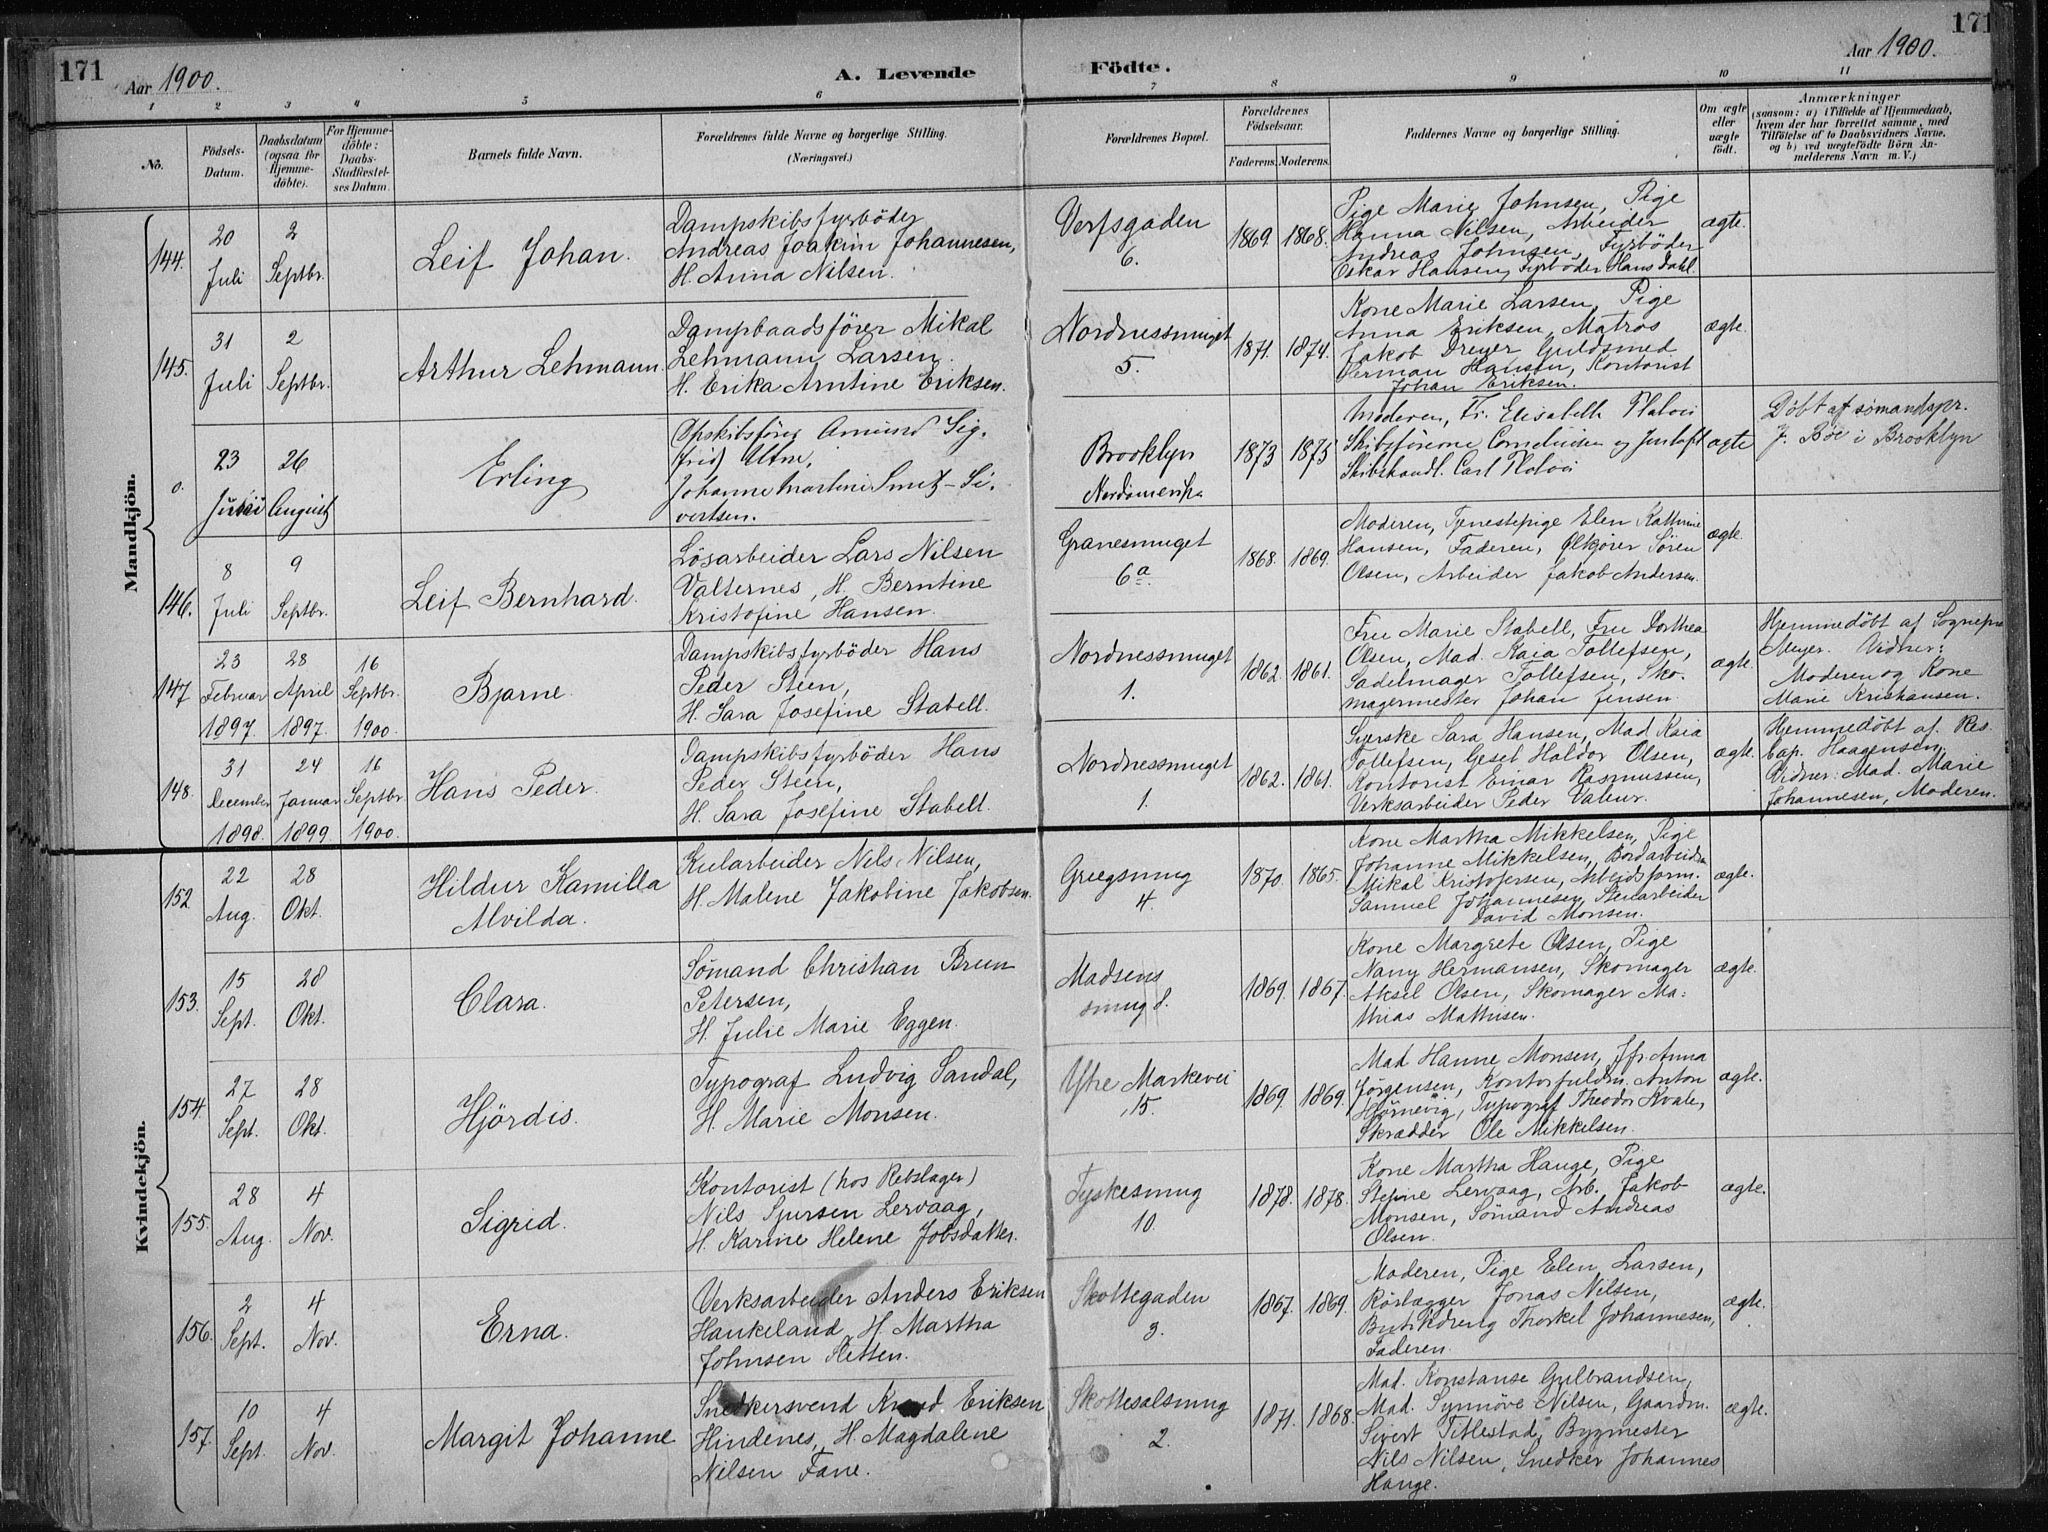 171
Aar 1900.
A. Levende Födte.
Aar 1900.
171
1 2 3 4 5 6 7 8 9 10 11
No.
Födsels-Datum.
Daabsdatum (ogsaa for Hjemmedöbte).
For Hjemmedöbte: Daabs-Stadfæstelses Datum.
Barnets fulde Navn.
Forældrenes fulde Navne og borgerlige Stilling. (Næringsvei.)
Forældrenes Bopæl.
Forældrenes Födselsaar.
Faderens. Moderens.
Faddernes Navne og borgerlige Stilling.
Om ægte eller uægte födt.
Anmærkninger
(saasom: a) i Tilfælde af Hjemmedaab, hvem der har forrettet samme, med Tilföielse af to Daabsvidners Navne, og b) ved uægtefödte Börn Anmelderens Navn m. V.)
Mandkjön.
144. 20 Juli 2 Septbr. Leif Johan.
Dampskibsfyrböder
Andreas Joakim Johannesen,
H. Anna Nilsen.
Verfsgaden 6. 1869. 1868.
Pige Marie Johnsen, Pige
Hanna Nilsen, Arbeider
Andreas Johnsen, Fyrböder
Oskar Hansen, Fyrböder Hans Dahl.
ægte.
145. 31 Juli 2 Septbr. Arthur Lehmann.
Dampbaadsförer Mikal
Lehmann Larsen.
H. Erika Arntine Eriksen.
Nordnessmuget 5. 1871. 1874.
Kone Marie Larsen, Pige
Anna Eriksen, Matros
Jakob Dreyer, Guldsmed
Herman Hansen, Kontorist
Johan Eriksen.
ægte.
0. 23 26 August Erling
Amund Sig-
frid Utne,
Johanne Martine Smitz-Si-
vertsen.
Brooklyn
Nordamerika
1873 1875
Moderen, Fr. Elisabeth
Skibsförerne Corneliusen og
Skibshandl. Carl
ægte
Döbt af sömandspr.
J. Böe i Brooklyn
146. 8 Juli 9 Septbr. Leif Bernhard.
Lösarbeider Lars Nilsen
Valternes, H. Berntine
Kristofine Hansen.
Granesmuget 6a. 1868. 1869.
Moderen, Tjenestepige Elen Kathrine
Hansen, Faderen, Ölkjörer Sören
Olsen, Arbeider Jakob Andersen.
ægte.
147 23 Februar 1897. 28 April 1897. 16 Septbr. 1900. Bjarne.
Dampskibsfyrböder Hans
Peder Steen,
H. Sara Josefine Stabell.
Nordnessmuget 1. 1862. 1861.
Fru Marie Stabell, Fru Dorthea
Olsen, Mad. Kaia Tollefsen,
Sadelmager Tollefsen, Sko-
magermester Johan Jensen
ægte.
Hjemmedöbt af Sognepr.
Meyer. Vidner:
Moderen og Kone
Marie Kristiansen.
148. 31 December 1898. 24 Januar 1899. 16 Septbr. 1900. Hans Peder.
Dampskibsfyrböder Hans
Peder Steen,
H. Sara Josefine Stabell.
Nordnessmuget 1. 1862. 1861.
Syerske Sara Hansen, Mad Kaia
Tollefsen, Gesel Haldor Olsen,
Kontorist Einar Rasmussen,
Verksarbeider Peder Valeur.
ægte.
Hjemmedöbt af. Res.
Cap. Haagensen.
Vidner: Mad. Marie
Johannesen, Moderen.
Kvindekjön.
152. 22 Aug. 28 Okt. Hildur Kamilla
Alvilda.
Kularbeider Nels Nilsen,
H. Malene Jakobine Jakobsen.
Griegsmug 4. 1870. 1865.
Kone Martha Mikkelsen, Pige
Johanne Mikkelsen, Bordarbeider
Mikal Kristofersen, Arbeidsform.
Samuel Johannesen, Stenarbeider
David Monsen.
ægte.
153. 15 Sept. 28 Okt. Clara.
Sömand Christian Brun
Petersen,
H. Julie Marie Eggen.
Madsens
smug 8. 1869. 1867.
Kone Margrete Olsen, Pige
Nany Hermansen, Skomager
Aksel Olsen, Skomager Ma-
thias Mathisen.
ægte.
154. 27 Sept. 28 Okt. Hjördis.
Typograf Ludvig Sandal,
H. Marie Monsen.
Ytre Markevei 15. 1869. 1869.
Mad Hanne Monsen, Jfr Anna
Jörgensen, Kontorfuldm. Anton
Hörnevig, Typograf Theodor Kvale,
Skrædder Ole Mikkelsen.
ægte.
155. 28 Aug. 4 Nov. Sigrid.
Kontorist (hos Rebslager)
Nils Sjursen Lervaag,
H. Karine Helene Jobsdatter.
Tyskesmug 10. 1878. 1878.
Kone Martha Hauge, Pige
Stefine Lervaag, Arb. Jakob
Monsen, Sömand Andreas
Olsen.
ægte.
156. 2 Sept. 4 Nov. Erna.
Verksarbeider Anders Eriksen
Haukeland, H. Martha
Johnsen Sletten.
Skottegaden 3. 1867. 1869.
Moderen, Pige Elen Larsen,
Rörlægger Jonas Nilsen,
Butikdreng Thorkel Johannesen,
Faderen.
ægte.
157. 10 Sept. 4 Nov. Margit Johanne
Snedkersvend Knud Eriksen
Hindenes, H. Magdalene
Nilsen Fane.
Skottesalsmug 2. 1871. 1868.
Mad. Konstanse Gulbrandsen,
Mad. Synnöve Nilsen, Gaardm.
Sivert Titlestad, Bygmester
Nils Nilsen, Snedker Johannes
Hauge.
ægte.